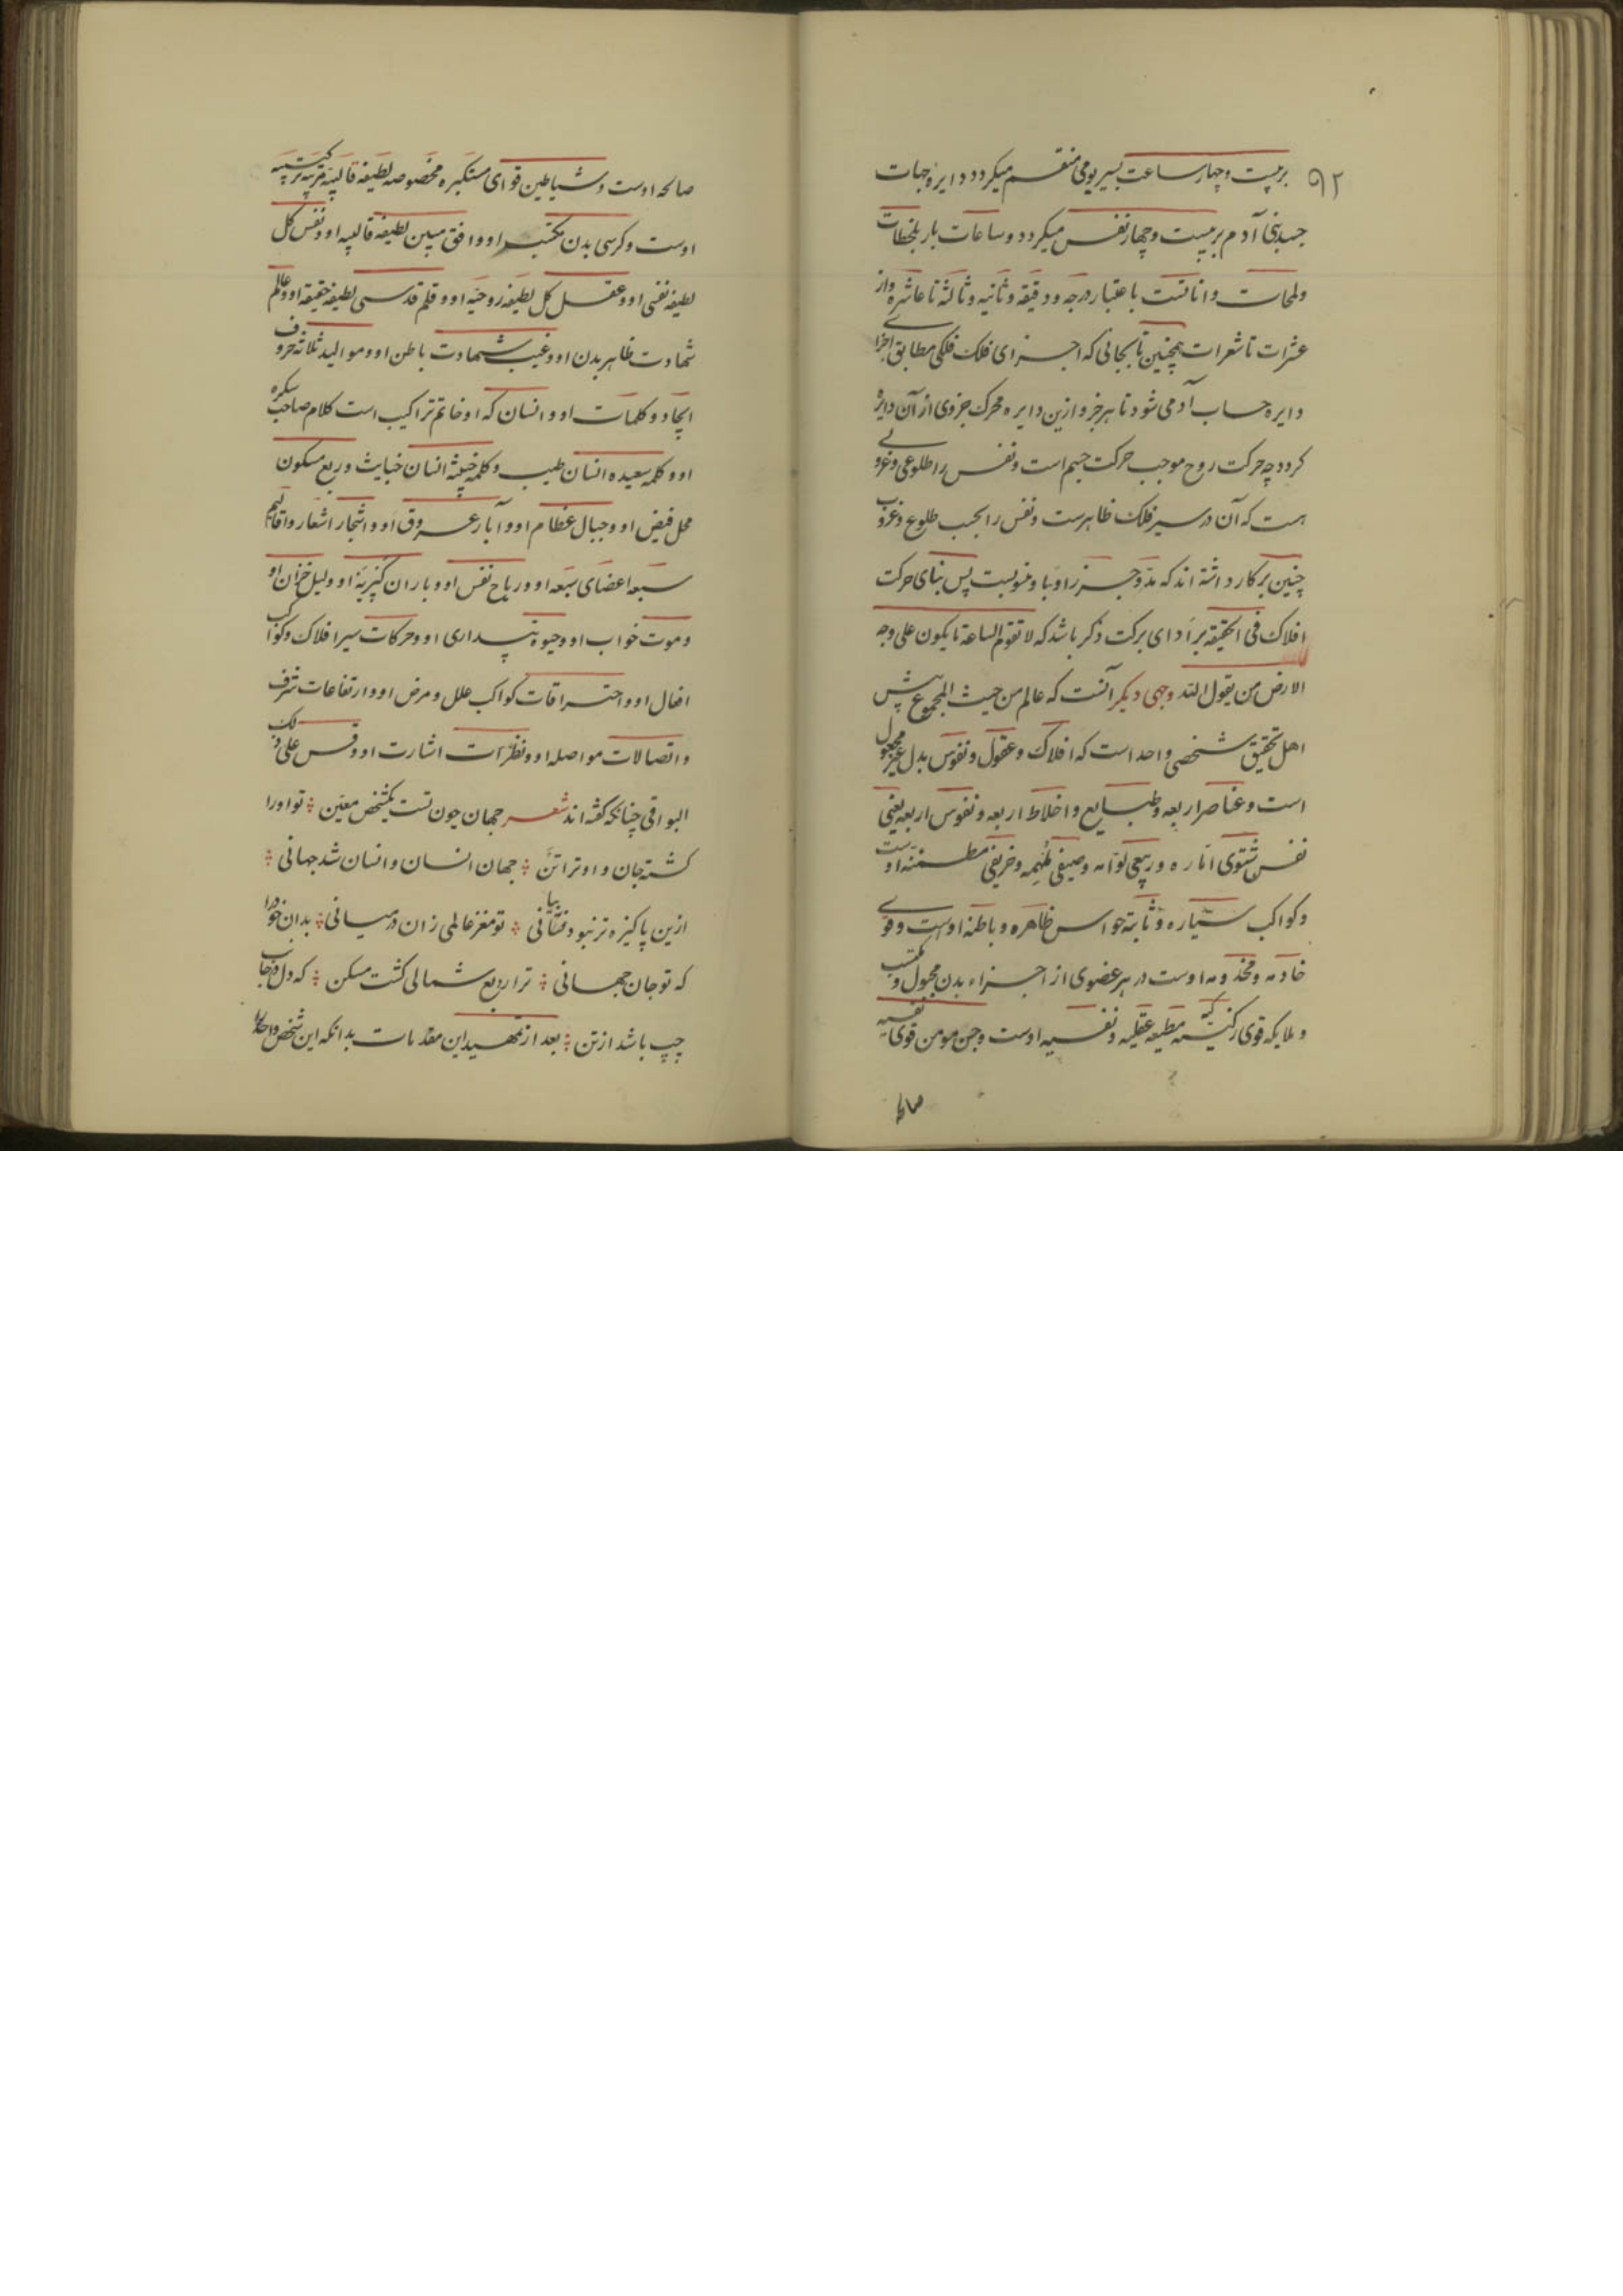 ۹۲
بر بیست و چهار ساعت بسیر یومی منقسم میکردد دایره جهات
جسد بنی آدم بر بیست و چهار نفس میکردد و ساعات باز بلحظات
ولمحات و اناتست باعتبار درجه و دقیقه و ثانیه و ثالثه تا عاشره و از
عشرات تا شعرات همچنین تا بجائی که اجزای فلک فلکی مطابق اجزای
دایره حساب آدمی شود تا هر جزو ازین دایره محرک جزوی از آن دایره
کردد چه حرکت روح موجب حرکت جسم است و نفس را طلوعی و غروبی
هست که آن در سیر فلک ظاهرست و نفس را بحسب طلوع و غروب
چنین بر کار داشته اند که مد و جزر او با و منوبست پس بنای حرکت
افلاک فی الحقیقه بر ادای برکت ذکر باشد که لا تقوم الساعة ما یکون علی وجه
الارض من یقول الله وجهی دیکر آنست که عالم من حیث المجموع پیش
اهل تحقیق شخصی واحد است که افلاک و عقول و نفوس بدل غیر مجبول
است و عناصر اربعه و طبایع و اخلاط اربعه و نفوس اربعه یعنی
نفس شتوی اماره و ربیعی لوامه و صیفی ملهمه و خریفی مطمئنه اوست
و کواکب سیاره و ثابته حواس ظاهره و باطنه اوست و قوی
خادمه و مخدومه اوست در هر عضوی از اجزاء بدن مجبول و مکتسب
و ملایکه قوی زکیه مطیعه عقلیه و نفسیه اوست و جن مومن قوی نفسیه
صالحه
صالحه اوست و شیاطین قوای مستکبره مخصوصه لطیفه قالبیه
اوست و کرسی بدن مکتسب او و افق مبین لطیفه قالبیه او و نفس کل
لطیفه نفسی او و عقل کل لطیفه روحیه او و قلم قدسی لطیفه حقیقه او و عالم
شهادت ظاهر بدن او و غیب شهادت باطن او و موالید ثلاثه حروف
ایجاد و کلمات او و انسان که او خاتم تراکیب است کلام صاحب سکره
او و کلمه سعیده انسان طیب و کلمه خبیثه انسان خبایث و ربع مسکون
محل فیض او و جبال عظام او و آبار عروق او و اشجار اشعار و اقالیم
سبعه اعضای سبعه او و ریاح نفس او و باران او و لیل خزان او
و موت خواب او و حیوة بیداری او و حرکات سیر افلاک و کواکب
افعال او و احتراقات کواکب علل و مرض او و ارتفاعات شرف
و اتصالات مواصله او و نظرات اشارت او و قس علی ذلک
البواقی چنانکه کفته اند شعر جهان چون تست یکشخص معین ؛ تو اورا
کشته جان و او ترا تن ؛ جهان انسان و انسان شد جهانی ؛
ازین پاکیزه تر نبود بیانی ؛ تو مغز عالمی زان در میانی ؛ بدان خود را
که تو جان جهانی ؛ ترا ربع شمالی کشت مسکن ؛ که دل در جانب
چپ باشد از تن ؛ بعد از تمهید این مقدمات بدانکه این شخص واحد را